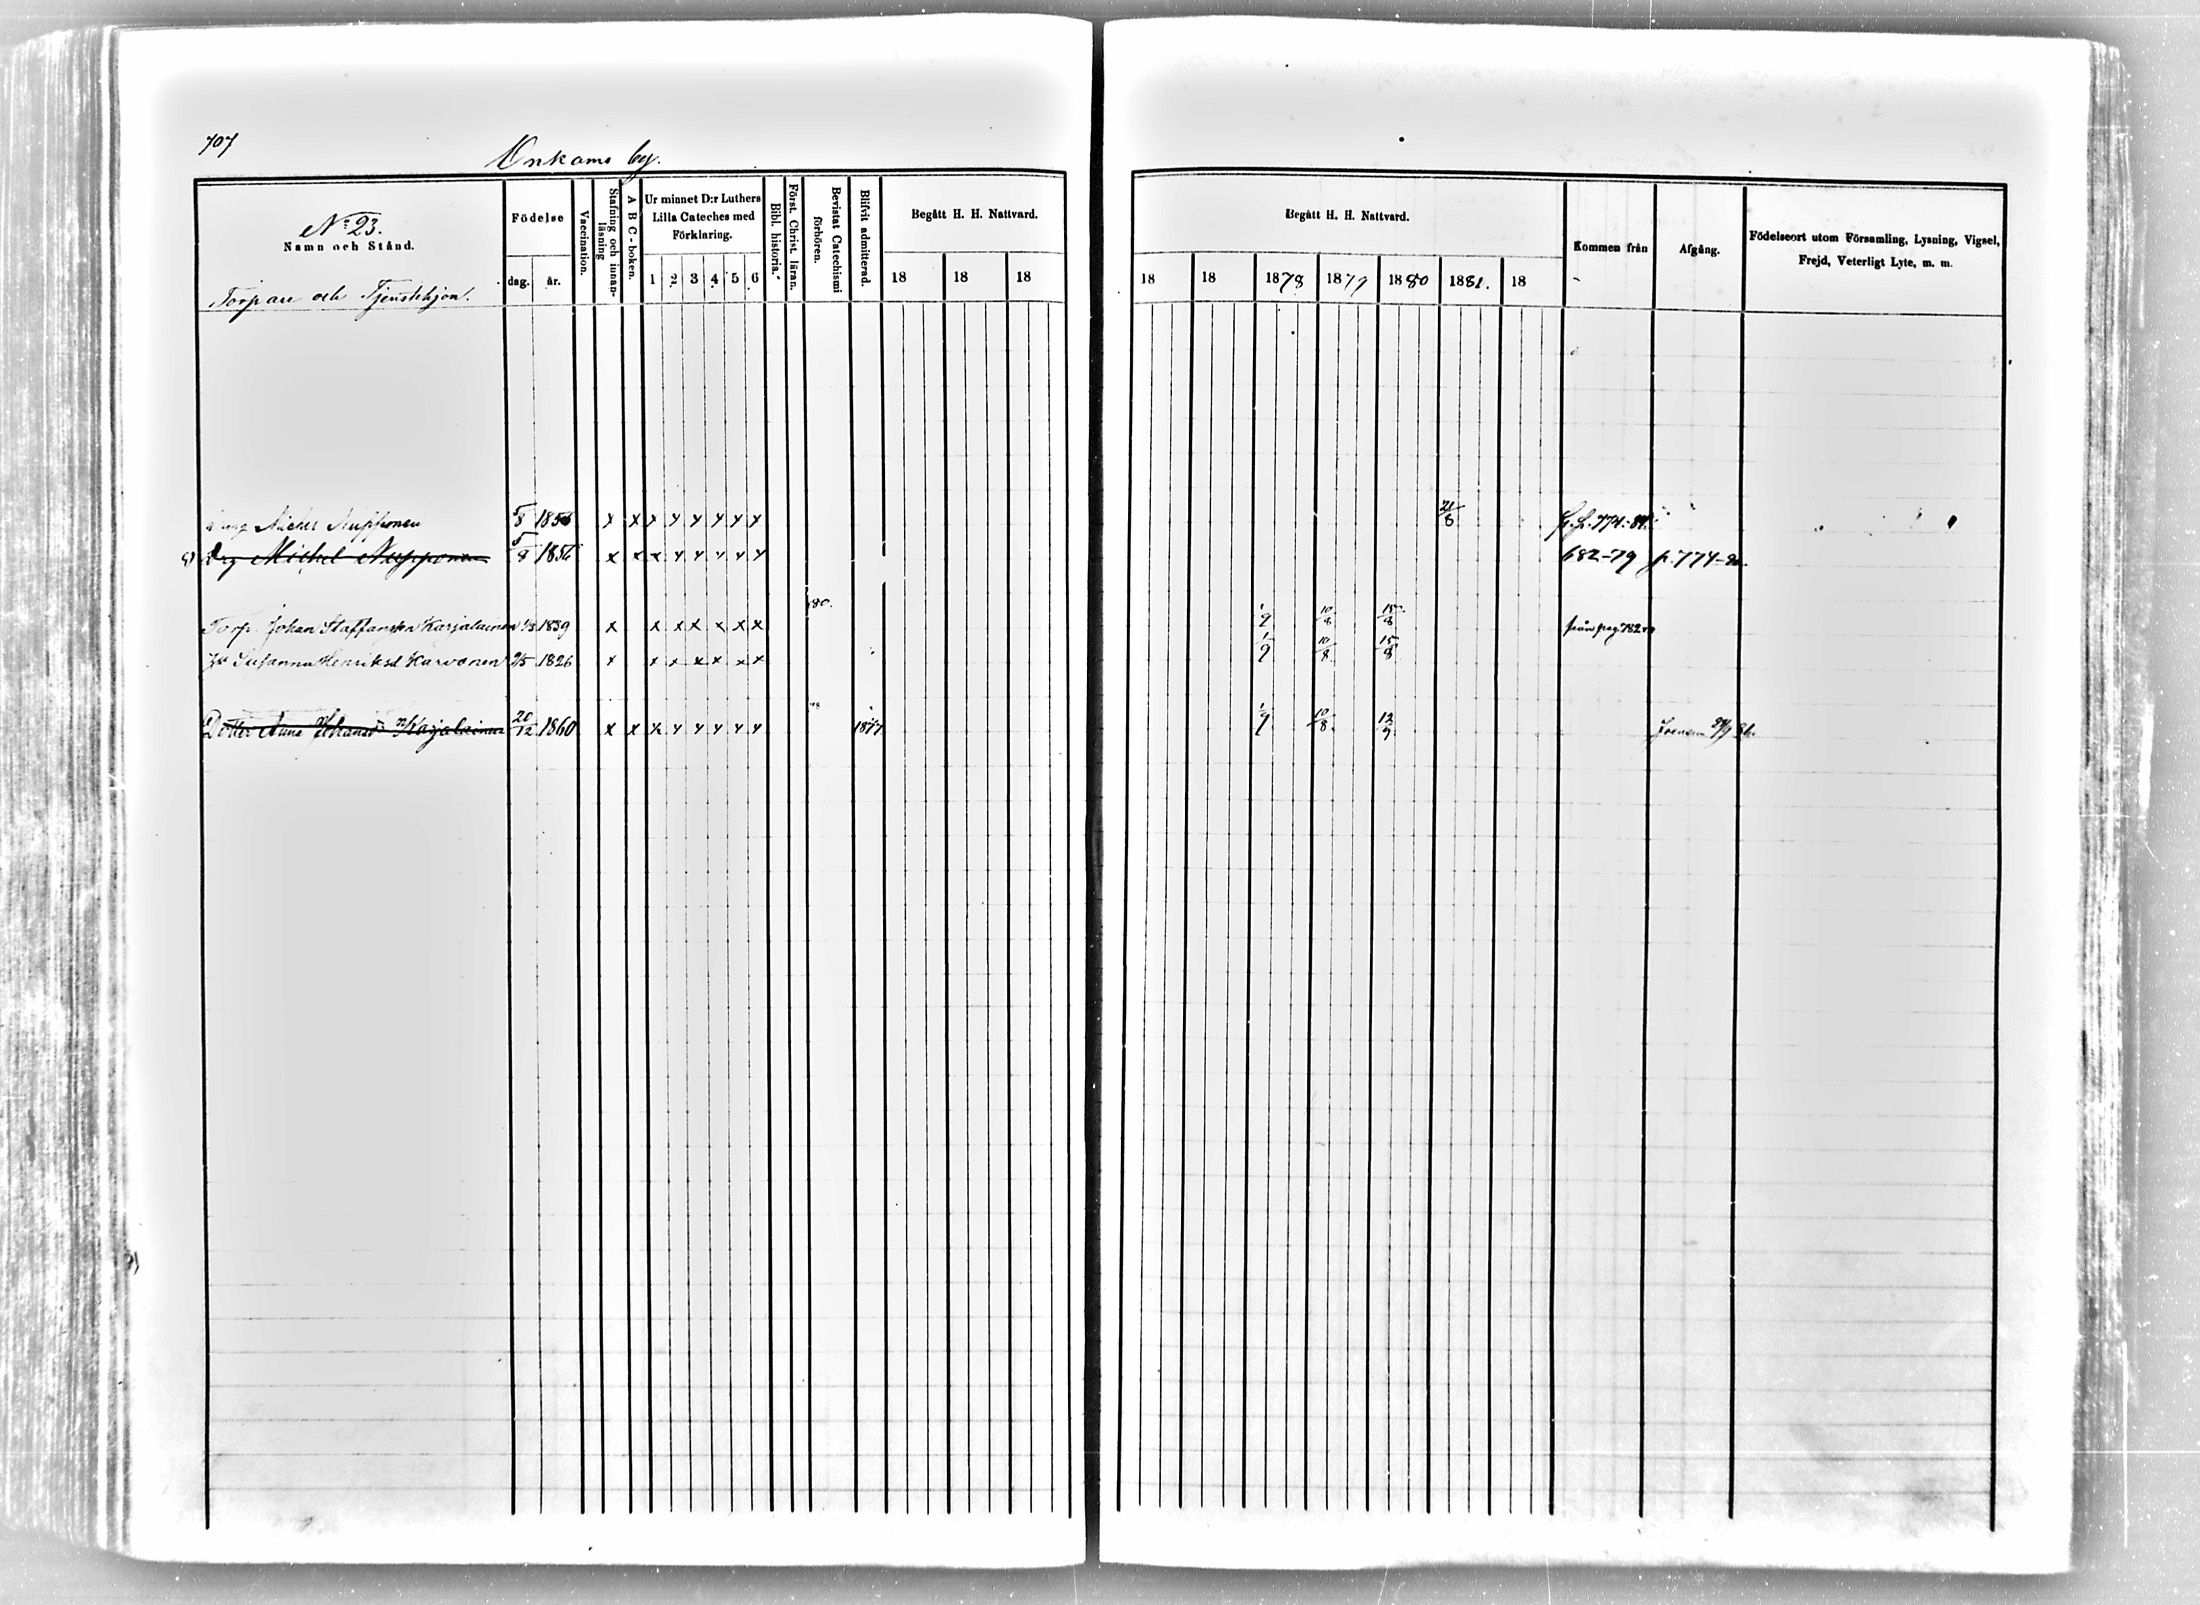 707
Onkamo by.
No 23.
Namn och Stånd.
Torpare och Tjenstehjon.
Födelse
dag.
år.
Vaccination.
Stafning och innan-
läsning
A B C - boken.
Ur minnet D:r Luthers
Lilla Cateches med
Förklaring.
1 2 3 4 5 6
Bibl. historia.
Först. Christ. läran.
Bevistat Catechismi
förhören.
Blifvit admitterad.
Begått H. H. Nattvard.
18 18 18
Begått H. H. Nattvard.
18 18 1878 1879 1880 1881. 18
Kommen från
Afgång.
Födelseort utom Församling, Lysning, Vigsel,
Frejd, Veterligt Lyte, m. m.
Michel Nupponen 5/8 1856 x x x x x x x x 21/8
Drg Michel Nupponen 5/8 1856 x x x x x x x x 682-79 p. 774-
80.
Torp. Johan Staffansson Karjalainen 1/3 1839 x x x x x x x 1/9 10/8 15/8 från pag 782
Hu Susanna Henriksd Karvonen 9/5 1826 x x x x x x x 1/9 10/8 15/8
Dotter Anna Johansd Karjalainen 20/12 1860 x x x x x x x x 1877 1/9 10/8 12/9 Joensuu